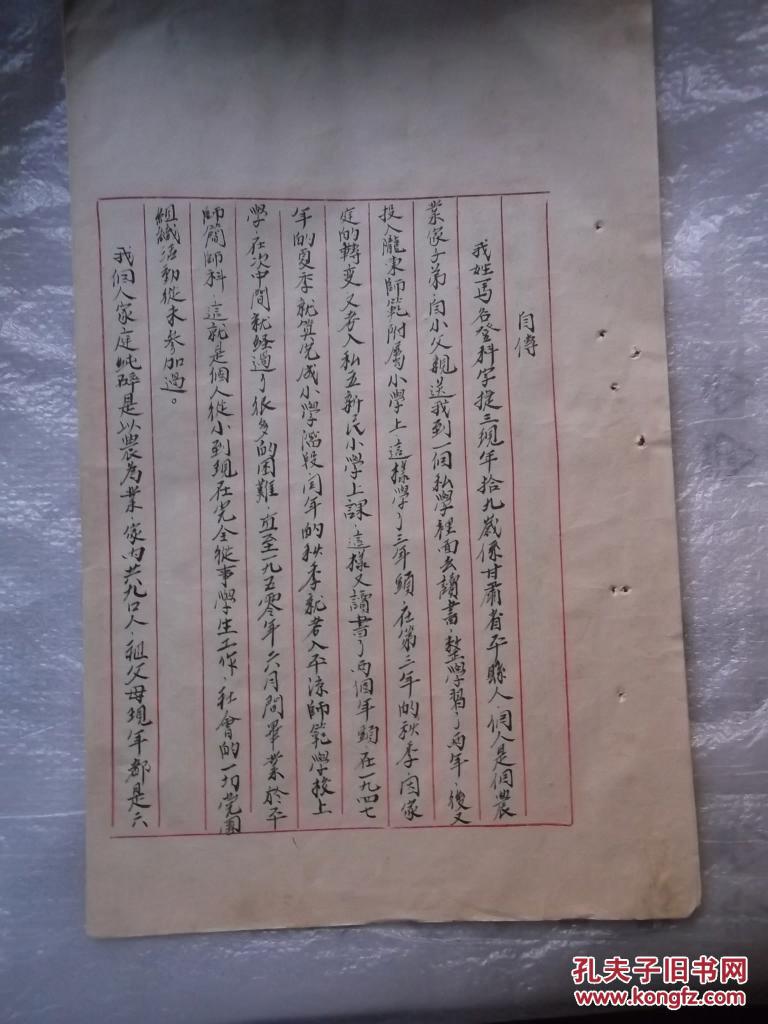 自傳
我姓馬名登科字捷三現年拾九歲係甘肅省平縣人·個人是個農
業家子弟·自小父親送我到一個私學裡面去讀書·整學習了兩年·後又
投入隴東師範附属小學上·這樣學了三年頭·在第三年的秋季·因家
庭的轉变·又考入私立新民小學上課·這樣又讀書了兩個年頭在一九四七
年的夏季就算完成小學階段·同年的秋季就考入平涼師範學校上
學·在次中間就經過了很多的困難·直至一九五零年六月間畢業於平
師簡師科·這就是個人從小到現在完全從事學生工作·社會的一切党團
組織活動從未參加過。
我個人家庭純碎是以農為業·家内共九口人·祖父母現年都是六
孔夫子旧书网
www.kongfz.com